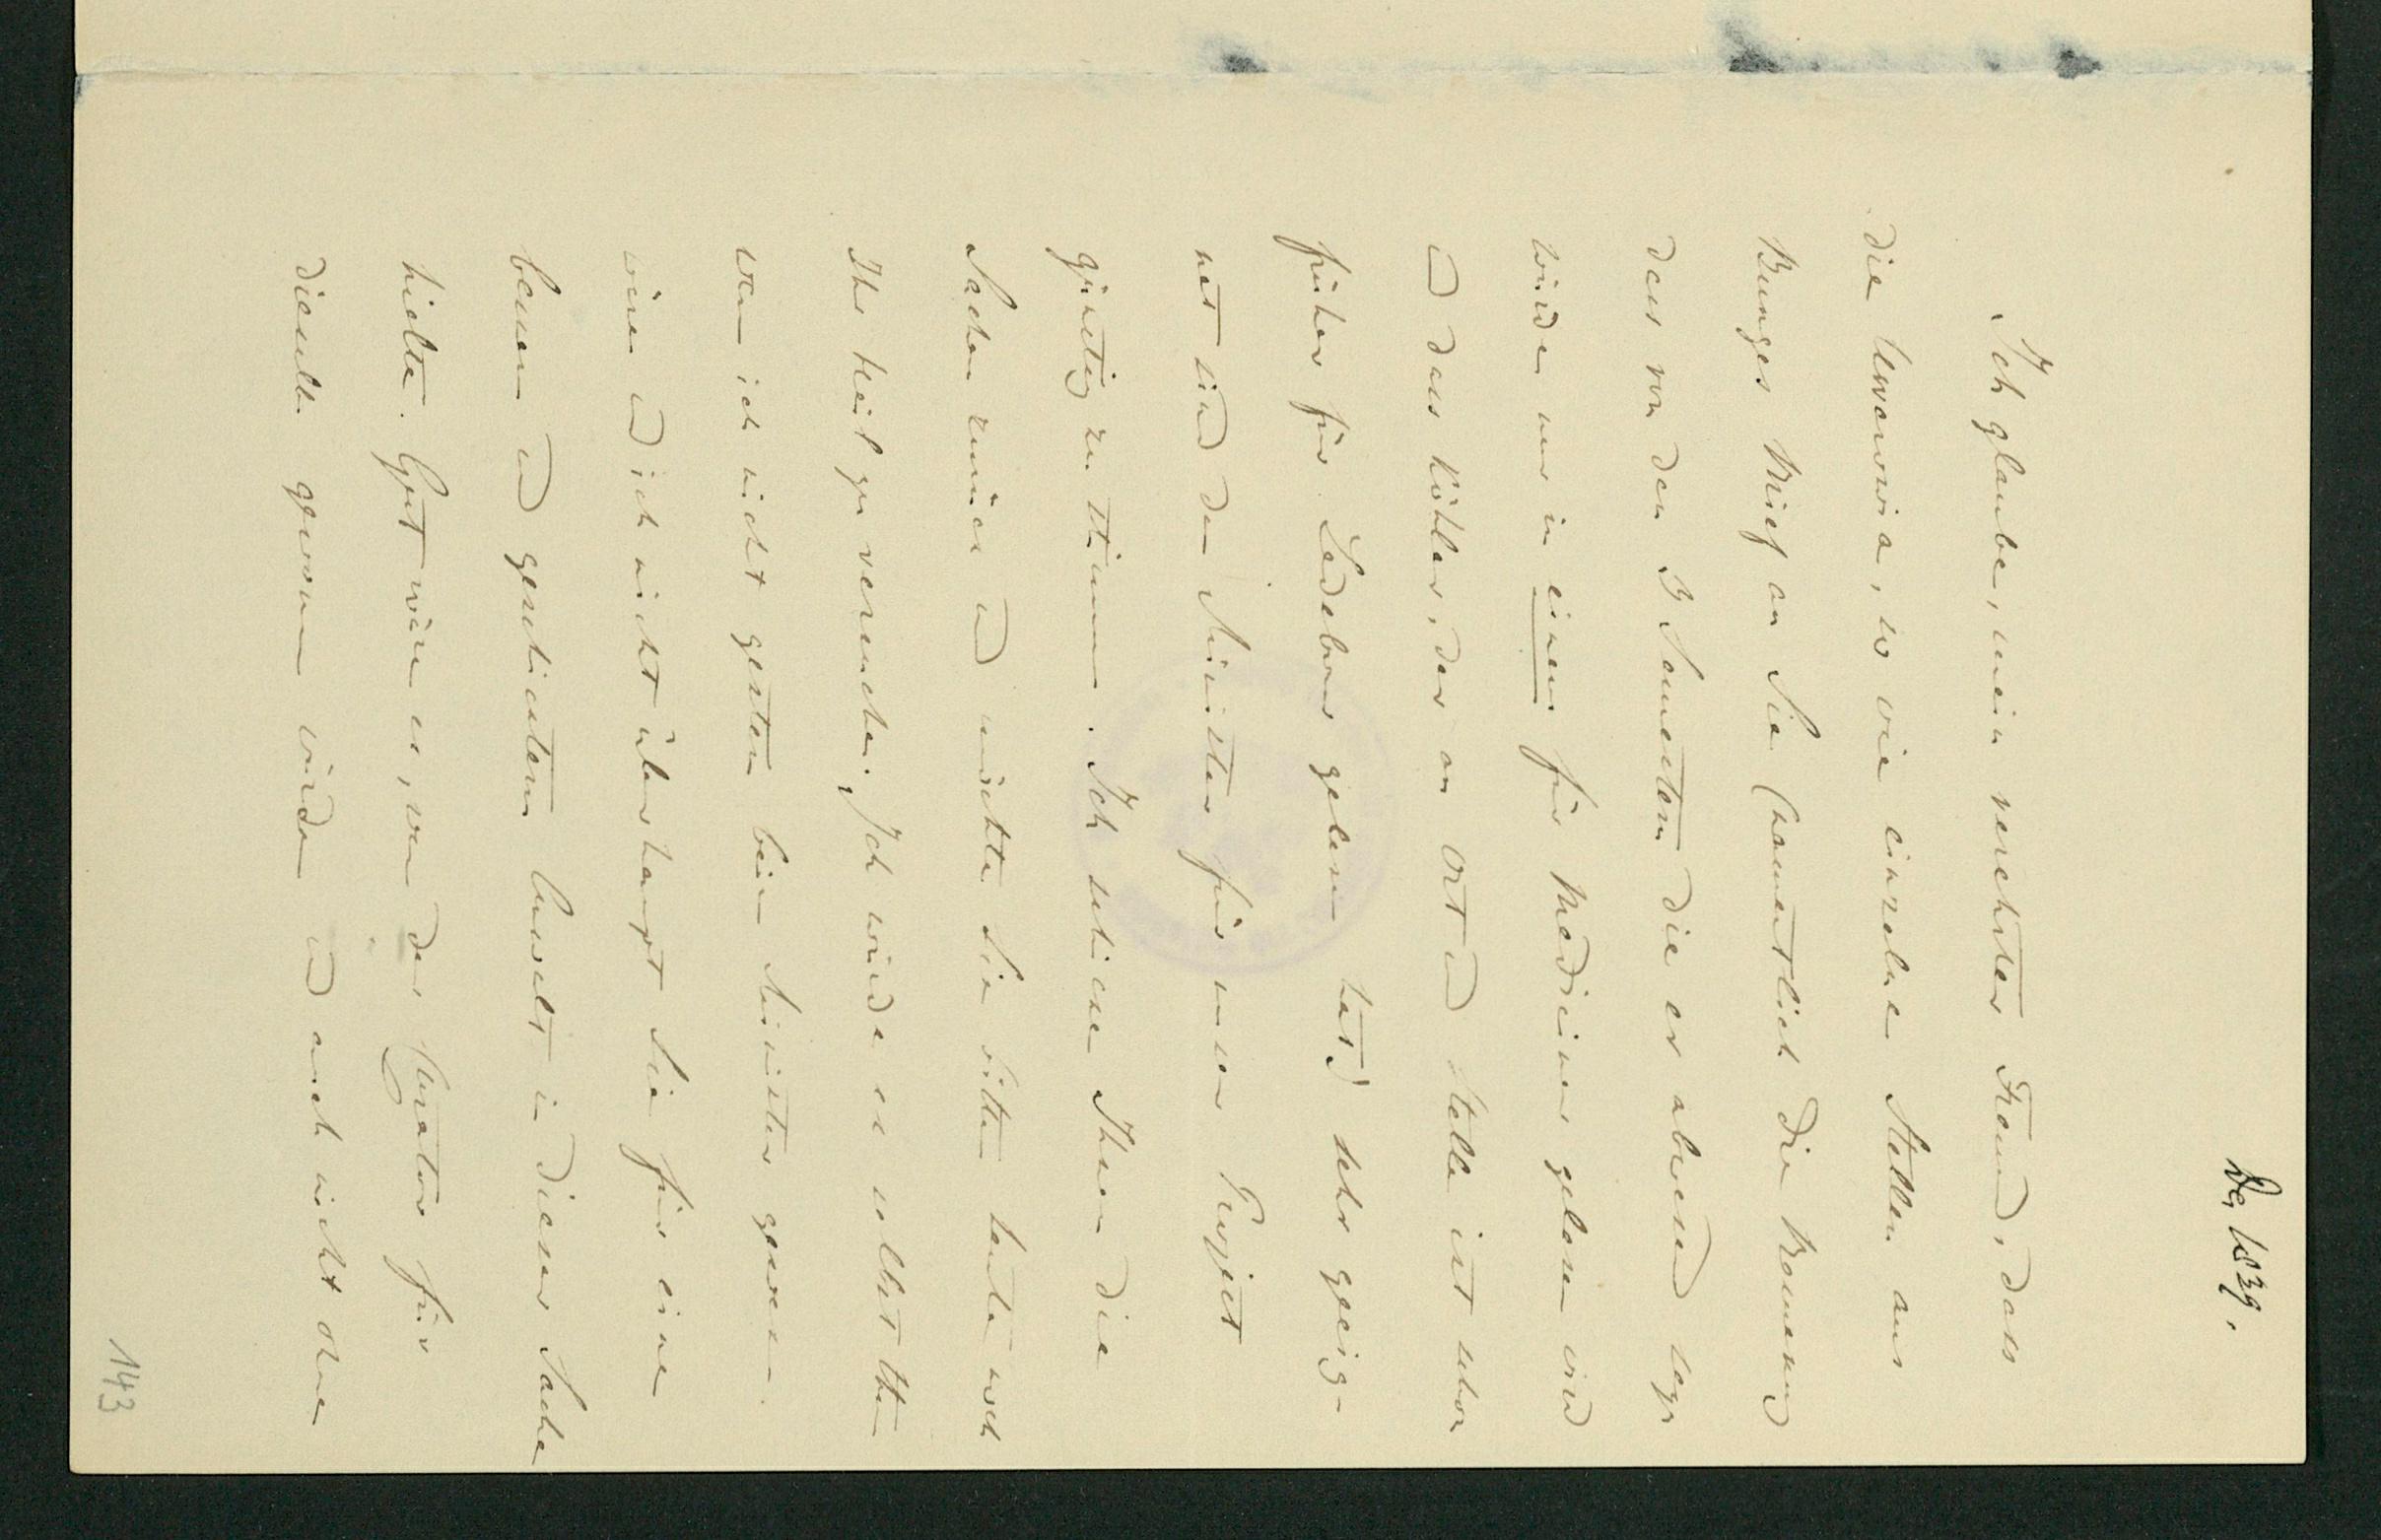 Dz, 1839.
Ich glaube, mein verehrter Freund, dass
die, so wie einzelne Stellen aus
Bunges Brief an Sie (namentlich die Bemerkung
dass von den 3 Semestern die er abwesend seyn
würde nur in einem für Mediciner gelesen wird
und dass Köhler, der an Ort und Stelle ist schon
früher für Ledebour gelesen hat) sehr geeig-
net sind den Minister für unser Projet
günstig zu stimmen. Ich schicke Ihnen die
Sachen zurück und möchte Sie bitten heute noch
Ihr Heil zu versuchen. Ich würde es selbst thun
wenn ich nicht gestern beim Minister gewesen
wäre und ich nicht überhaupt Sie für einen
bessern und geschicktern Anwalt in dieser Sache
hielte. Gut wäre es, wenn der Curator für
dieselbe gewonnen würde und auch nicht ohne
143